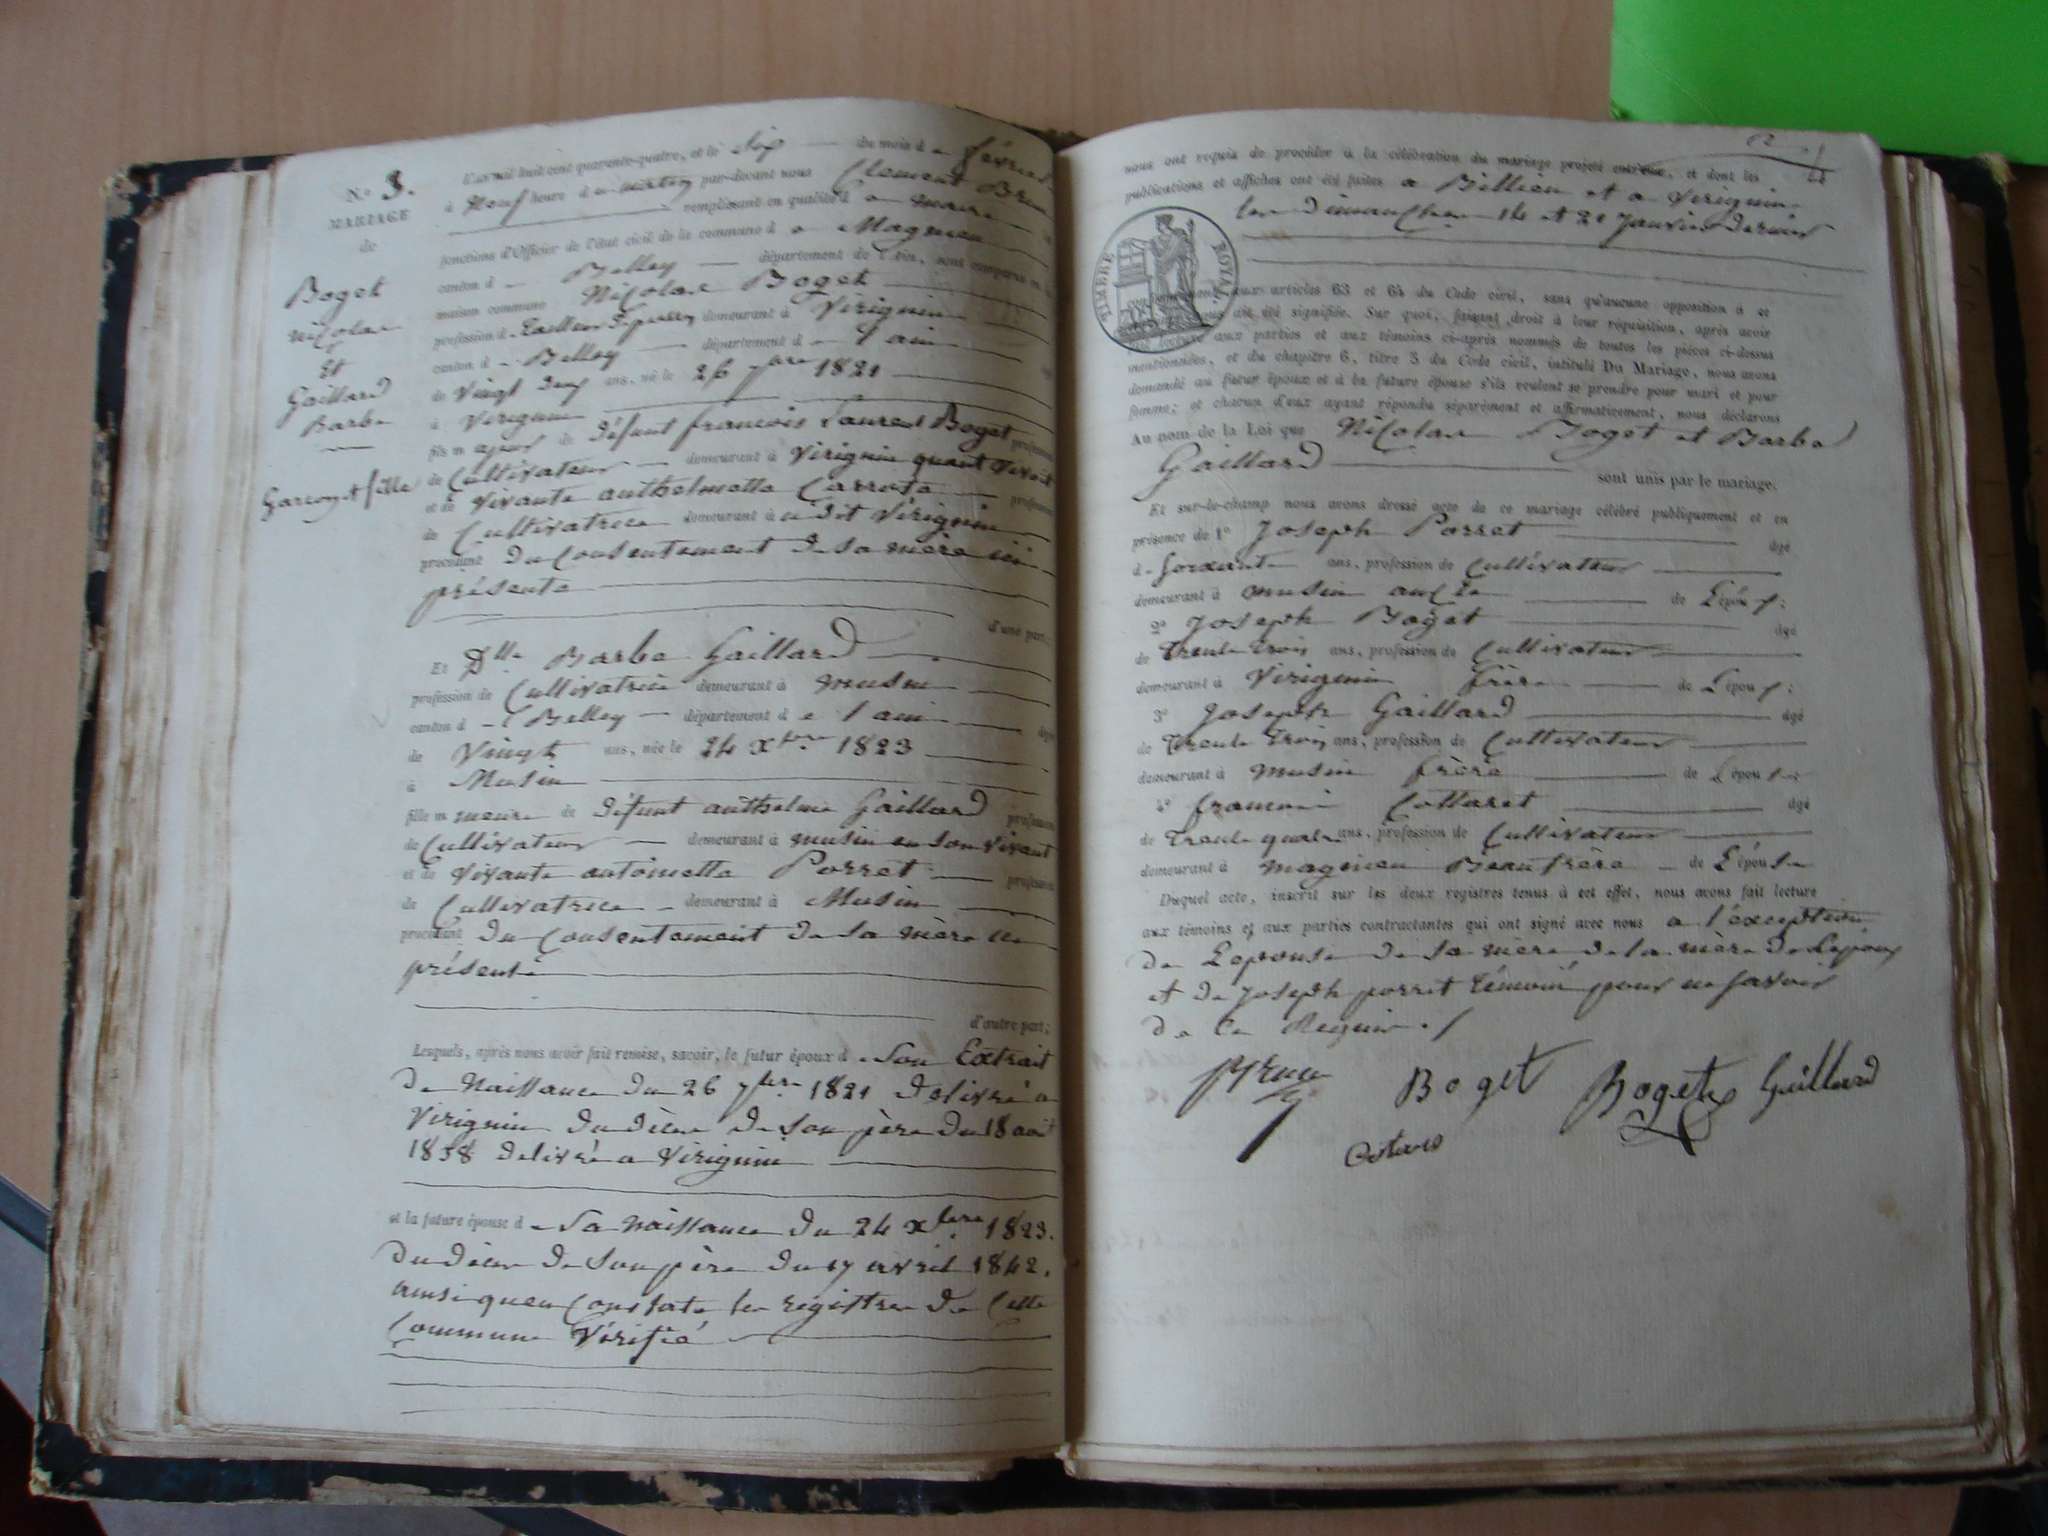 N.° 3.
MARIAGE
de
Boget
Nicolas
Et
Gaillard
Barbe
Garçon et fille
L'an mil huit cent quarante-quatre, et le six du mois de février
à Neuf heure du matin par-devant nous Clement Brun
remplissant en qualité de maire
fonctions d'Officier de l'état civil de la commune de Magnieu
canton de Belley département de l'Ain, sont comparus en
maison commune Nicolas Boget
profession de demeurant à Virignin
canton de Belley département de l'ain
de Vingt deux ans, né le 26 7bre 1821
à Virignin
fils majeur de défunt francois Laurent Boget profession
de Cultivateur demeurant à Virignin quant vivait
et de Vivante anthelmette profession
de Cultivatrice demeurant à Virignin
procédant du Consentement de sa mère ici
présente
d'une part.
Et Dlle Barbe Gaillard
profession de Cultivatrice demeurant à musin
canton de Belley département de l'ain âgée
de Vingt ans, née le 24 xbre 1823
à Musin
fille mineure de défunt anthelme Gaillard profession
de Cultivateur demeurant à musin en son vivant
et de Vivante antoinette Porret profession
de Cultivatrice demeurant à Musin
procédant du Consentement de sa mère ici
présente
d'autre part;
Lesquels, après nous avoir fait remise, savoir, le futur époux de Son Extrait
de Naissance du 26 7bre 1821 delivré a
Virignin du décès de Son père du 18 aoit
1838 delivré a Virignin
et la future épouse de Sa Naissance du 24 xbre 1823.
du décès de Son père du 17 avril 1842,
ainsi quen Constate les registres de Cette
Commune Vérifié
nous ont requis de procéder à la célébration du mariage projeté entr'eux, et dont les
publications et affiches ont été faites a Billieu et a Virignin
les dimanches 14 et 21 Janvier dernier
TIMBRE ROYAL
conformément aux articles 63 et 64 du Code civil, sans qu'aucune opposition à ce
ait été signifiée. Sur quoi, faisant droit à leur réquisition, après avoir
fait lecture aux parties et aux témoins ci-après nommés de toutes les pièces ci-dessus
mentionnées, et du chapitre 6, titre 5 du Code civil, intitulé Du Mariage, nous avons
demandé au futur époux et à la future épouse s'ils veulent se prendre pour mari et pour
femme; et chacun d'eux ayant répondu séparément et affirmativement, nous déclarons
Au nom de la Loi que Nicolas Boget et Barbe
Gaillard sont unis par le mariage.
Et sur-le-champ nous avons dressé acte de ce mariage célébré publiquement et en
présence de 1° Joseph Porret âgé
de Soixante ans, profession de Cultivateur
demeurant à musin de L'épouse;
2° Joseph Boget âgé
de Trente Trois ans, profession de Cultivateur
demeurant à Virignin frère de L'époux;
3° Joseph Gaillard âgé
de Trente Trois ans, profession de Cultivateur
demeurant à musin frère de L'épouse
4° francois Cottaret âgé
de Trente quatre ans, profession de Cultivateur
demeurant à magnieu Beaufrère de L'épouse
Duquel acte, inscrit sur les deux registres tenus à cet effet, nous avons fait lecture
aux témoins et aux parties contractantes qui ont signé avec nous a l'exception
de L'épouse de sa mère de la mère de L'époux
et de Joseph porret témoin pour ne savoir
de ce Requis ./
Brun Boget Boget Gaillard